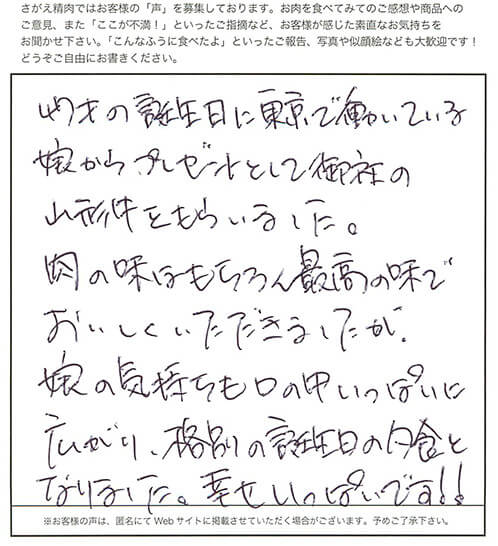 さがえ精肉ではお客様の「声」を募集しております。お肉を食べてみてのご感想や商品への
ご意見、また「ここが不満！」といったご指摘など、お客様が感じた素直なお気持ちを
お聞かせ下さい。「こんなふうに食べたよ」といったご報告、写真や似顔絵なども大歓迎です！
どうぞご自由にお書きください。
才の誕生日に東京で働いている
娘からプレゼントとして御社の
山形牛をもらいました。
肉の味はもちろん最高の味で
おいしくいただきましたが、
娘の気持ちも口の中いっぱいに
広がり、格別の誕生日の夕食と
なりました。幸せいっぱいです!!
※お客様の声は、匿名にて Web サイトに掲載させていただく場合がございます。予めご了承下さい。